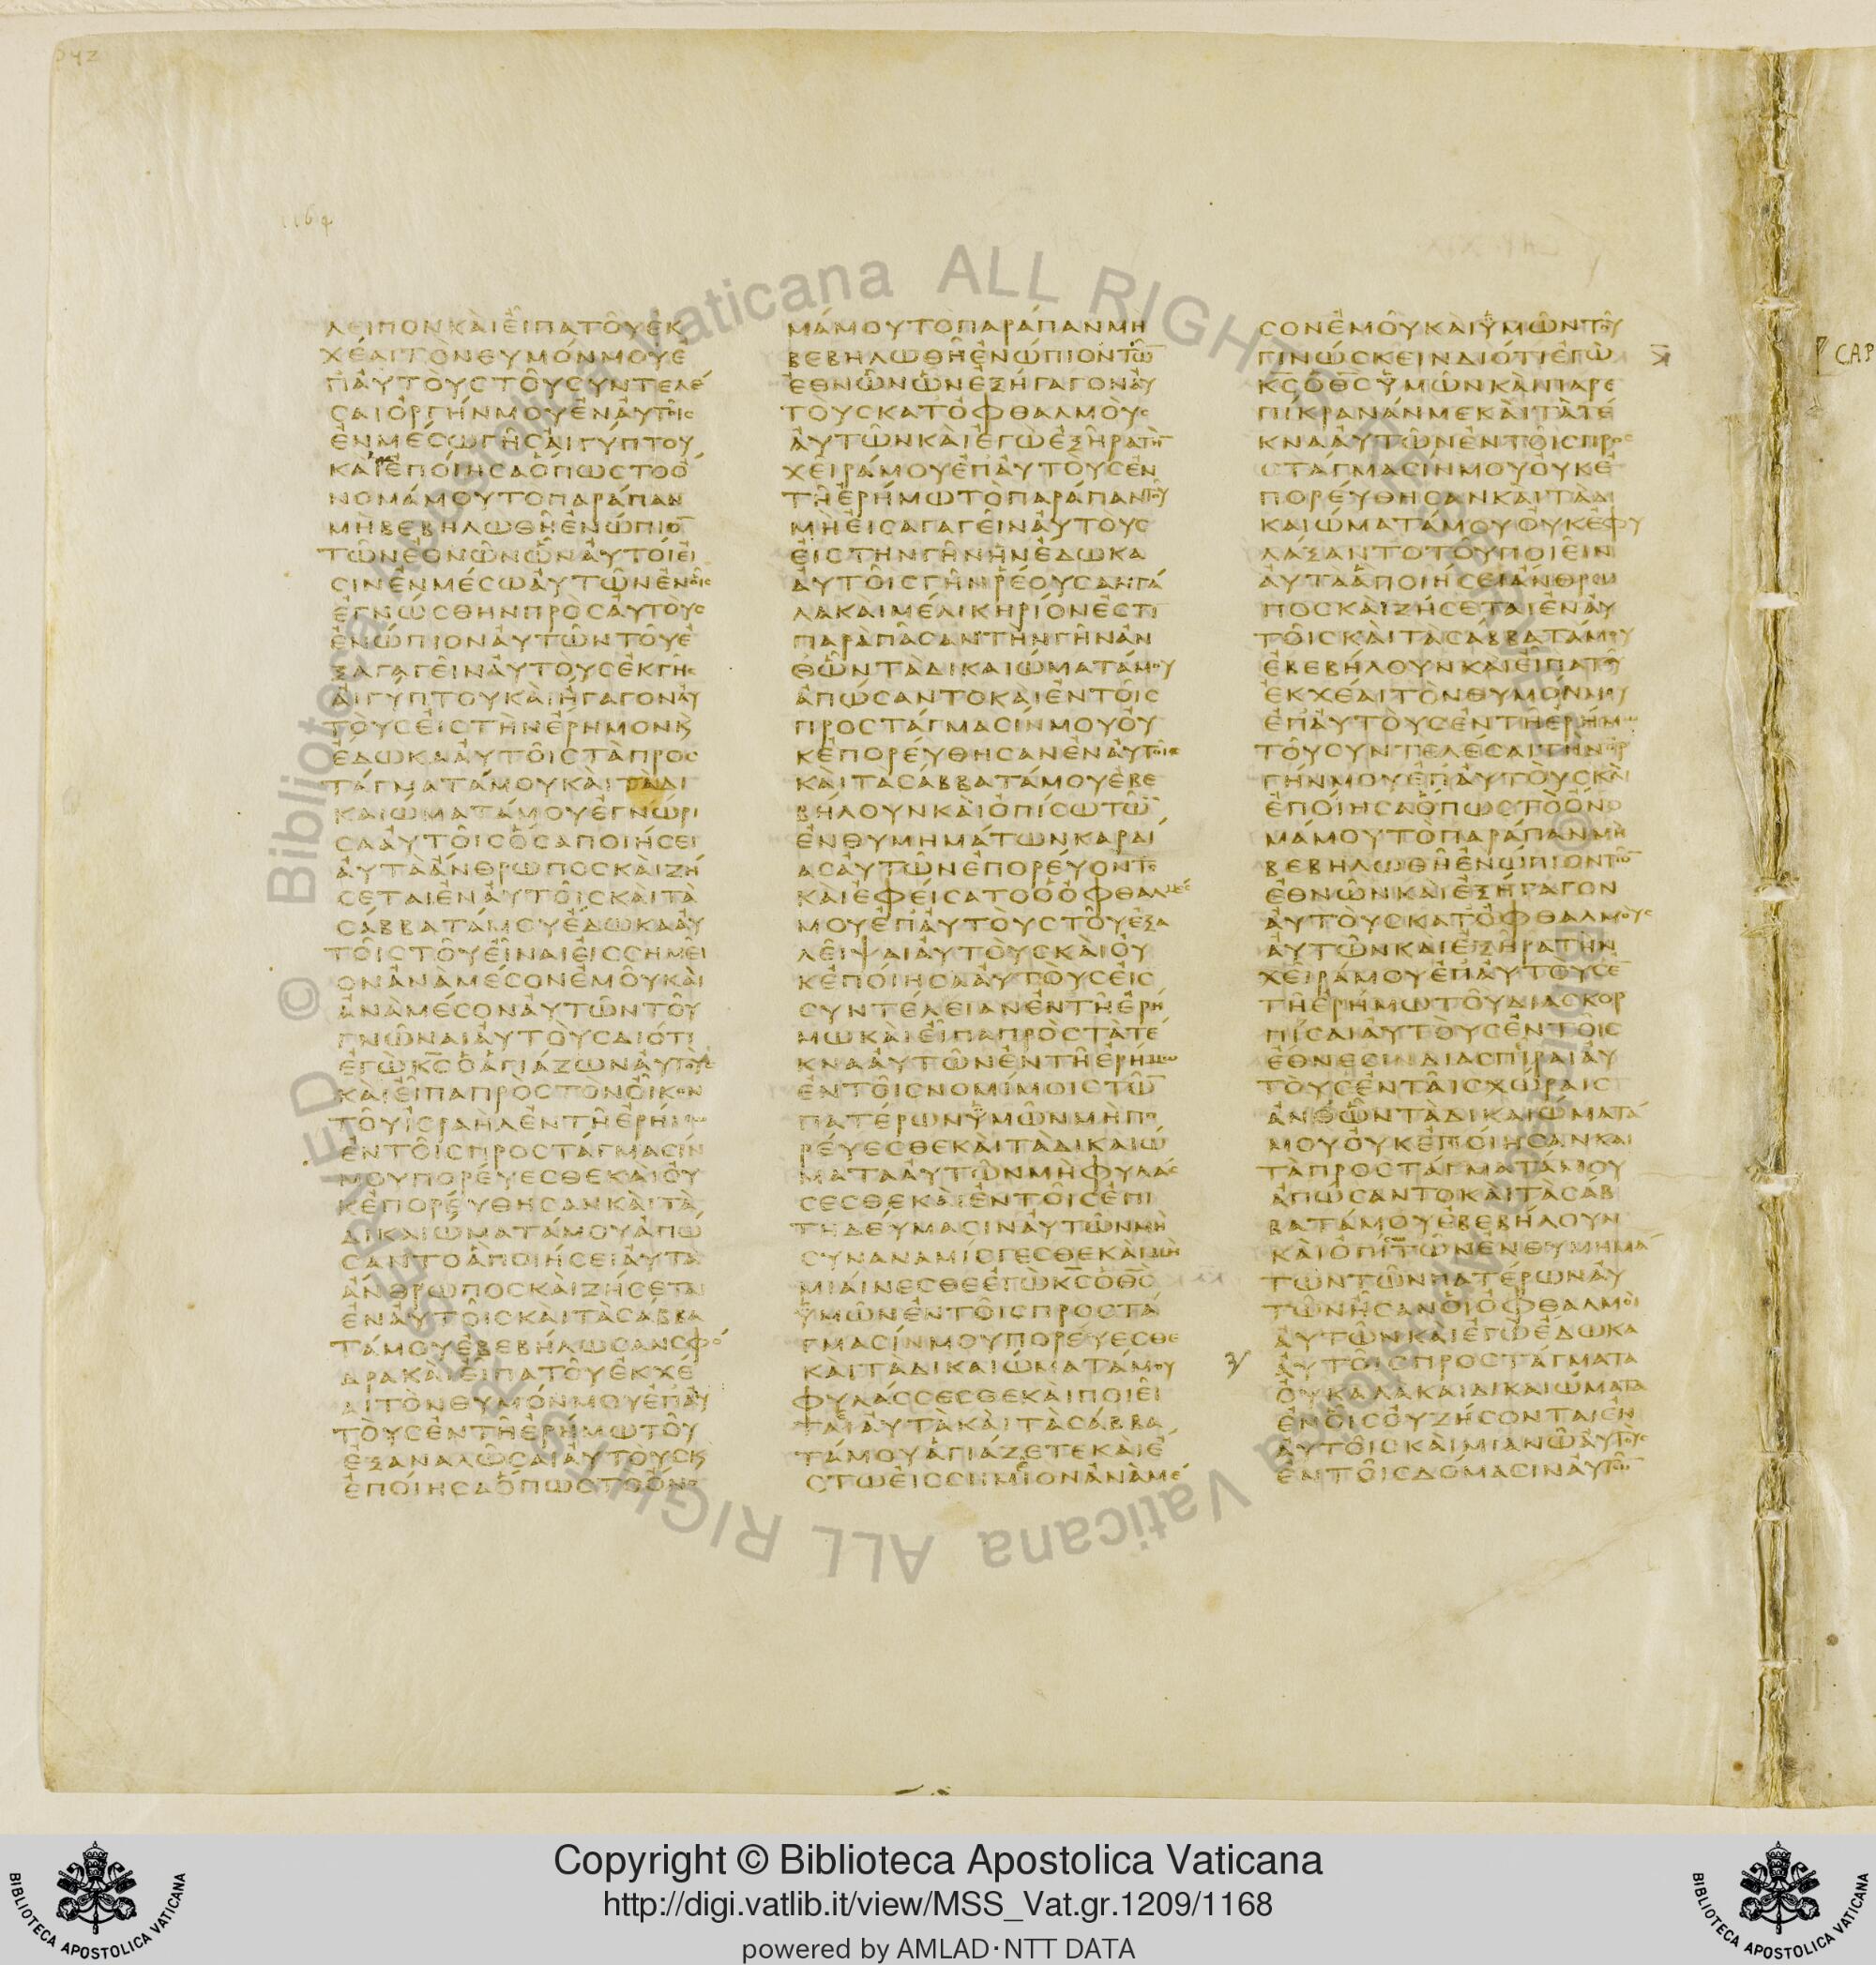 1164
ΛΕΙΠΟΝΚΑΙΕΙΠΑΤΟΥΕΚ
ΧΕΑΙΤΟΝΘΥΜΟΝΜΟΥΕ
ΠΑΥΤΟΥΣΤΟΥΣΥΝΤΕΛΕ
ΣΑΙΟΡΓΗΝΜΟΥΕΝΑΥΤΗΣ
ΕΝΜΕΣΩΓΗΣΑΙΓΥΠΤΟΥ
ΚΑΙΕΠΟΙΗΣΑΟΠΩΣΤΟΟ
ΝΟΜΑΜΟΥΤΟΠΑΡΑΠΑΝ
ΜΗΒΕΒΗΛΩΘΗΕΝΩΠΙΟ̅
ΤΩΝΕΘΝΩΝΩΝΑΥΤΟΙΕΙ
ΣΙΝΕΝΜΕΣΩΑΥΤΩΝΕΝΟΙΣ
ΕΓΝΩΣΘΗΝΠΡΟΣΑΥΤΟΥΣ
ΕΝΩΠΙΟΝΑΥΤΩΝΤΟΥΕ
ΞΑΓΑΓΕΙΝΑΥΤΟΥΣΕΚΓΗΣ
ΑΙΓΥΠΤΟΥΚΑΙΗΓΑΓΟΝΑΥ
ΤΟΥΣΕΙΣΤΗΝΕΡΗΜΟΝΚ
ΕΔΩΚΑΑΥΤΟΙΣΤΑΠΡΟΣ
ΤΑΓΜΑΤΑΜΟΥΚΑΙΤΑΔΙ
ΚΑΙΩΜΑΤΑΜΟΥΕΓΝΩΡΙ
ΣΑΑΥΤΟΙΣΟΣΑΠΟΙΗΣΕΙ
ΑΥΤΑΑΝΘΡΩΠΟΣΚΑΙΖΗ
ΣΕΤΑΙΕΝΑΥΤΟΙΣΚΑΙΤΑ
ΣΑΒΒΑΤΑΜΟΥΕΔΩΚΑΑΥ
ΤΟΙΣΤΟΥΕΙΝΑΙΕΙΣΣΗΜΕΙ
ΟΝΑΝΑΜΕΣΟΝΕΜΟΥΚΑΙ
ΑΝΑΜΕΣΟΝΑΥΤΩΝΤΟΥ
ΓΝΩΝΑΙΑΥΤΟΥΣΔΙΟΤΙ
ΕΓΩΚ̅Σ̅ΟΑΓΙΑΖΩΝΑΥΤΟΥΣ
ΚΑΙΕΙΠΑΠΡΟΣΤΟΝΟΙΚΟΝ
ΤΟΥΙΣΡΑΗΛΕΝΤΗΕΡΗΜΩ
ΕΝΤΟΙΣΠΡΟΣΤΑΓΜΑΣΙΝ
ΜΟΥΠΟΡΕΥΕΣΘΕΚΑΙΟΥ
ΚΕΠΟΡΕΥΘΗΣΑΝΚΑΙΤΑ
ΔΙΚΑΙΩΜΑΤΑΜΟΥΑΠΩ
ΣΑΝΤΟΑΠΟΙΗΣΕΙΑΥΤΑ
ΑΝΘΡΩΠΟΣΚΑΙΖΗΣΕΤΑΙ
ΕΝΑΥΤΟΙΣΚΑΙΤΑΣΑΒΒΑ
ΤΑΜΟΥΕΒΕΒΗΛΩΣΑΝΣΦΟ
ΔΡΑΚΑΙΕΙΠΑΤΟΥΕΚΧΕ
ΑΙΤΟΝΘΥΜΟΝΜΟΥΕΠΑΥ
ΤΟΥΣΕΝΤΗΕΡΗΜΩΤΟΥ
ΕΞΑΝΑΛΩΣΑΙΑΥΤΟΥΣΚ
ΕΠΟΙΗΣΑΟΠΩΣΤΟΟΝΟ
ΜΑΜΟΥΤΟΠΑΡΑΠΑΝΜΗ
ΒΕΒΗΛΩΘΗΕΝΩΠΙΟΝΤΩ̅
ΕΘΝΩΝΩΝΕΞΗΓΑΓΟΝΑΥ
ΤΟΥΣΚΑΤΟΦΘΑΛΜΟΥΣ
ΑΥΤΩΝΚΑΙΕΓΩΕΞΗΡΑΤΗ̅
ΧΕΙΡΑΜΟΥΕΠΑΥΤΟΥΣΕΝ
ΤΗΕΡΗΜΩΤΟΠΑΡΑΠΑΝΤΟΥ
ΜΗΕΙΣΑΓΑΓΕΙΝΑΥΤΟΥΣ
ΕΙΣΤΗΝΓΗΝΗΝΕΔΩΚΑ
ΑΥΤΟΙΣΓΗΝΡΕΟΥΣΑΝΓΑ
ΛΑΚΑΙΜΕΛΙΚΗΡΙΟΝΕΣΤΙ
ΠΑΡΑΠΑΣΑΝΤΗΝΓΗΝΑΝ
ΘΩΝΤΑΔΙΚΑΙΩΜΑΤΑΜΟΥ
ΑΠΩΣΑΝΤΟΚΑΙΕΝΤΟΙΣ
ΠΡΟΣΤΑΓΜΑΣΙΝΜΟΥΟΥ
ΚΕΠΟΡΕΥΘΗΣΑΝΕΝΑΥΤΟΙΣ
ΚΑΙΤΑΣΑΒΒΑΤΑΜΟΥΕΒΕ
ΒΗΛΟΥΝΚΑΙΟΠΙΣΩΤΩ̅
ΕΝΘΥΜΗΜΑΤΩΝΚΑΡΔΙ
ΑΣΑΥΤΩΝΕΠΟΡΕΥΟΝΤΟ
ΚΑΙΕΦΕΙΣΑΤΟΟΟΦΘΑΛΜΟΣ
ΜΟΥΕΠΑΥΤΟΥΣΤΟΥΕΞΑ
ΛΕΙΨΑΙΑΥΤΟΥΣΚΑΙΟΥ
ΚΕΠΟΙΗΣΑΑΥΤΟΥΣΕΙΣ
ΣΥΝΤΕΛΕΙΑΝΕΝΤΗΕΡΗ
ΜΩΚΑΙΕΙΠΑΠΡΟΣΤΑΤΕ
ΚΝΑΑΥΤΩΝΕΝΤΗΕΡΗΜΩ
ΕΝΤΟΙΣΝΟΜΙΜΟΙΣΤΩ̅
ΠΑΤΕΡΩΝΥΜΩΝΜΗΠΟ
ΡΕΥΕΣΘΕΚΑΙΤΑΔΙΚΑΙΩ
ΜΑΤΑΑΥΤΩΝΜΗΦΥΛΑΣ
ΣΕΣΘΕΚΑΙΕΝΤΟΙΣΕΠΙ
ΤΗΔΕΥΜΑΣΙΝΑΥΤΩΝΜΗ
ΣΥΝΑΝΑΜΙΣΓΕΣΘΕΚΑΙΜΗ
ΜΙΑΙΝΕΣΘΕΕΓΩΚ̅Σ̅ΟΘ̅Σ̅
ΥΜΩΝΕΝΤΟΙΣΠΡΟΣΤΑ
ΓΜΑΣΙΝΜΟΥΠΟΡΕΥΕΣΘΕ
ΚΑΙΤΑΔΙΚΑΙΩΜΑΤΑΜΟΥ
ΦΥΛΑΣΣΕΣΘΕΚΑΙΠΟΙΕΙ
ΤΑΙΑΥΤΑΚΑΙΤΑΣΑΒΒΑ
ΤΑΜΟΥΑΓΙΑΖΕΤΕΚΑΙΕ
ΣΤΩΕΙΣΣΗΜΙΟΝΑΝΑΜΕ
ΣΟΝΕΜΟΥΚΑΙΥΜΩΝΤΟΥ
ΓΙΝΩΣΚΕΙΝΔΙΟΤΙΕΓΩ
Κ̅Σ̅ΟΘ̅Σ̅ΥΜΩΝΚΑΙΠΑΡΕ
ΠΙΚΡΑΝΑΝΜΕΚΑΙΤΑΤΕ
ΚΝΑΑΥΤΩΝΕΝΤΟΙΣΠΡΟΣ
ΣΤΑΓΜΑΣΙΝΜΟΥΟΥΚΕ
ΠΟΡΕΥΘΗΣΑΝΚΑΙΤΑΔΙ
ΚΑΙΩΜΑΤΑΜΟΥΟΥΚΕΦΥ
ΛΑΞΑΝΤΟΤΟΥΠΟΙΕΙΝ
ΑΥΤΑΑΠΟΙΗΣΕΙΑΝΘΡΩ
ΠΟΣΚΑΙΖΗΣΕΤΑΙΕΝΑΥ
ΤΟΙΣΚΑΙΤΑΣΑΒΒΑΤΑΜΟΥ
ΕΒΕΒΗΛΟΥΝΚΑΙΕΙΠΑΤΟΥ
ΕΚΧΕΑΙΤΟΝΘΥΜΟΝΜΟΥ
ΕΠΑΥΤΟΥΣΕΝΤΗΕΡΗΜΩ
ΤΟΥΣΥΝΤΕΛΕΣΑΙΤΗΝΟΡ
ΓΗΝΜΟΥΕΠΑΥΤΟΥΣΚΑΙ
ΕΠΟΙΗΣΑΟΠΩΣΤΟΟΝΟ
ΜΑΜΟΥΤΟΠΑΡΑΠΑΝΜΗ
ΒΕΒΗΛΩΘΗΕΝΩΠΙΟΝΤΩ̅
ΕΘΝΩΝΚΑΙΕΞΗΓΑΓΟΝ
ΑΥΤΟΥΣΚΑΤΟΦΘΑΛΜΟΥΣ
ΑΥΤΩΝΚΑΙΕΞΗΡΑΤΗΝ
ΧΕΙΡΑΜΟΥΕΠΑΥΤΟΥΣΕ̅
ΤΗΕΡΗΜΩΤΟΥΔΙΑΣΚΟΡ
ΠΙΣΑΙΑΥΤΟΥΣΕΝΤΟΙΣ
ΕΘΝΕΣΙΝΔΙΑΣΠΙΡΑΙΑΥ
ΤΟΥΣΕΝΤΑΙΣΧΩΡΑΙΣ
ΑΝΘΩΝΤΑΔΙΚΑΙΩΜΑΤΑ
ΜΟΥΟΥΚΕΠΟΙΗΣΑΝΚΑΙ
ΤΑΠΡΟΣΤΑΓΜΑΤΑΜΟΥ
ΑΠΩΣΑΝΤΟΚΑΙΤΑΣΑΒ
ΒΑΤΑΜΟΥΕΒΕΒΗΛΟΥΝ
ΚΑΙΟΠΙΤΩΝΕΝΘΥΜΗΜΑ
ΤΩΝΤΩΝΠΑΤΕΡΩΝΑΥ
ΤΩΝΗΣΑΝΟΙΟΦΘΑΛΜΟΙ
ΑΥΤΩΝΚΑΙΕΓΩΕΔΩΚΑ
ΑΥΤΟΙΣΠΡΟΣΤΑΓΜΑΤΑ
ΟΥΚΑΛΑΚΑΙΔΙΚΑΙΩΜΑΤΑ
ΕΝΟΙΣΟΥΖΗΣΟΝΤΑΙΕΝ
ΑΥΤΟΙΣΚΑΙΜΙΑΝΩΑΥΤΟΥΣ
ΕΝΤΟΙΣΔΟΜΑΣΙΝΑΥΤΩ̅
CAP
Copyright © Biblioteca Apostolica Vaticana
http://digi.vatlib.it/view/MSS_Vat.gr.1209/1168
powered by AMLAD·NTT DATA
BIBLIOTECA APOSTOLICA VATICANA
BIBLIOTECA APOSTOLICA VATICANA
© Biblioteca Apostolica Vaticana ALL RIGHTS RESERVED